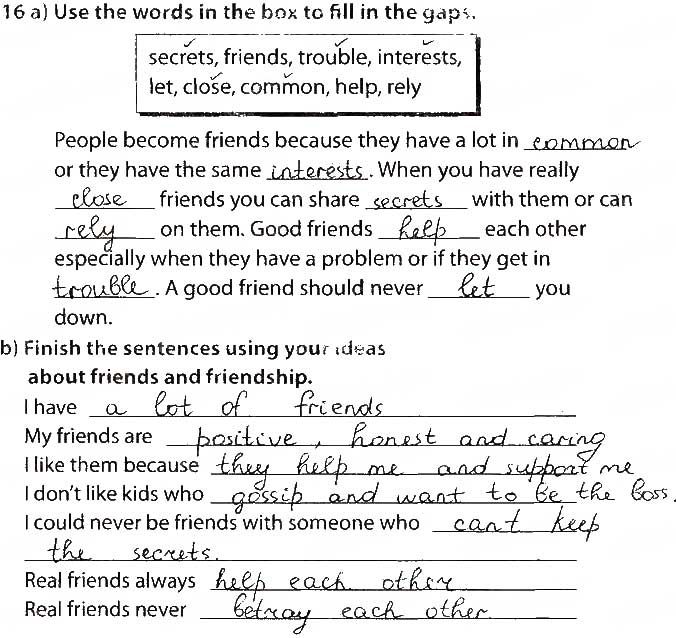 16 a) Use the words in the box to fill in the gaps.
secrets, friends, trouble, interests,
let, close, common, help, rely
People become friends because they have a lot in common
or they have the same interests. When you have really
close friends you can share secrets with them or can
rely on them. Good friends help each other
especially when they have a problem or if they get in
trouble. A good friend should never let you
down.
b) Finish the sentences using your ideas
about friends and friendship.
I have a lot of friends
My friends are positive, honest and caring
I like them because they help me and support me
I don't like kids who gossip and want to be the boss.
I could never be friends with someone who can't keep
the secrets.
Real friends always help each other
Real friends never betray each other.